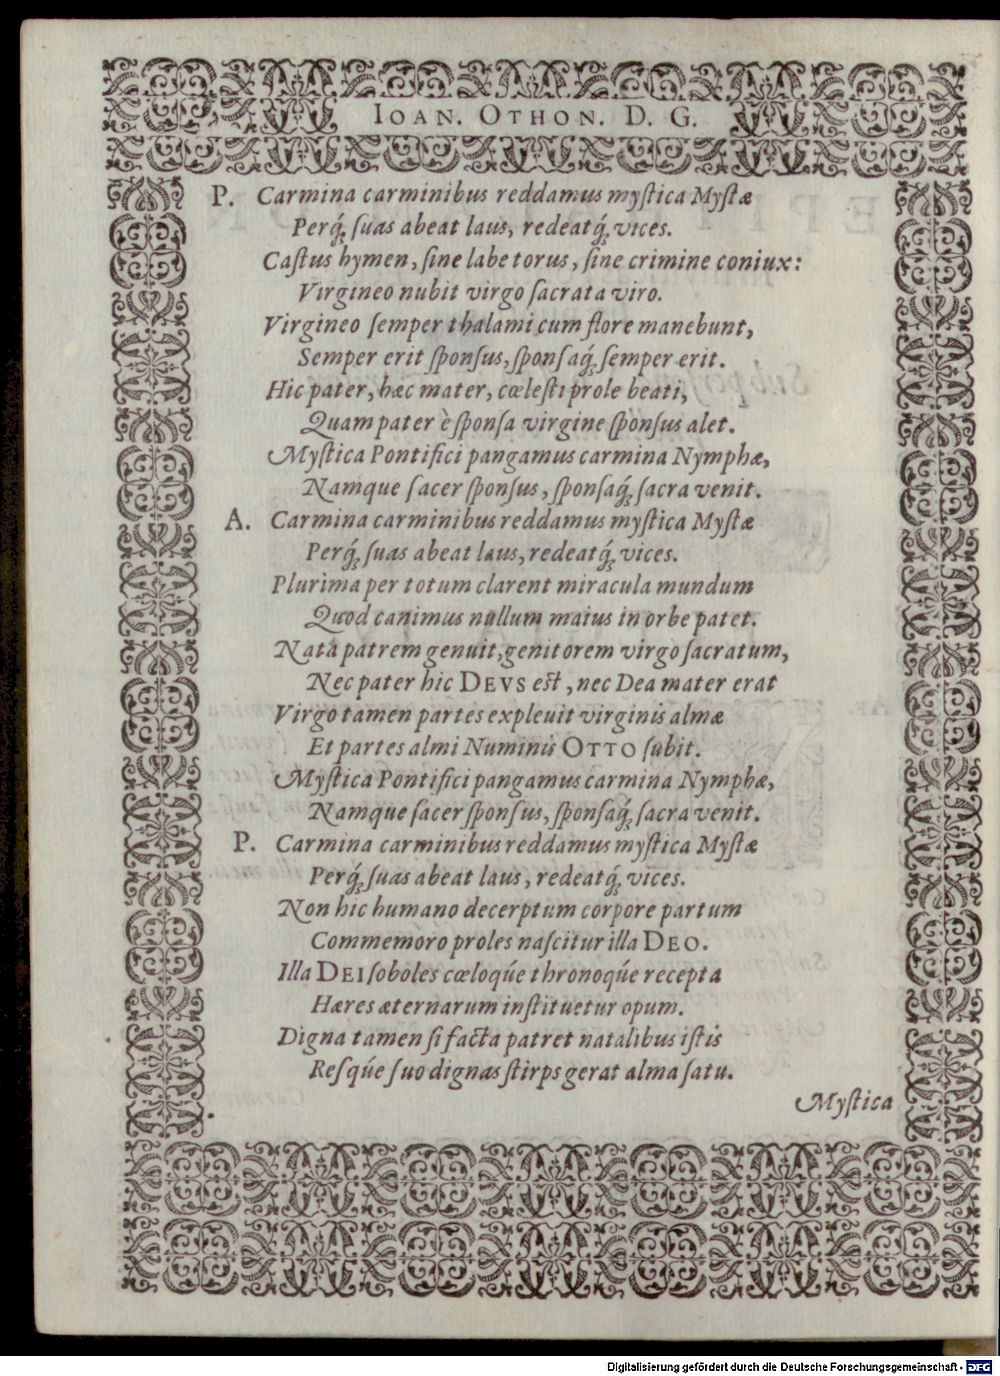 IOAN. OTHON. D. G.
P. Carmina carminibus reddamus myſtica Myſtæ
Perq́; ſuas abeat laus, redeatq́; vices.
Caſtus hymen, ſine labe torus, ſine crimine coniux:
Virgineo nubit virgo ſacrata viro.
Virgineo ſemper thalami cum flore manebunt,
Semper erit ſponſus, ſponſaq́; ſemper erit.
Hic pater, hæc mater, cœleſti prole beati,
Quam pater è ſponſa virgine ſponſus alet.
Myſtica Pontifici pangamus carmina Nymphæ,
Namque ſacer ſponſus, ſponſaq́; ſacra venit.
A. Carmina carminibus reddamus myſtica Myſtæ
Perq́; ſuas abeat laus, redeatq́; vices.
Plurima per totum clarent miracula mundum
Quod canimus nullum maius in orbe patet.
Nata patrem genuit, genitorem virgo ſacratum,
Nec pater hic DEVS eſt, nec Dea mater erat
Virgo tamen partes expleuit virginis almæ
Et partes almi Numinis OTTO ſubit.
Myſtica Pontifici pangamus carmina Nymphæ,
Namque ſacer ſponſus, ſponſaq́; ſacra venit.
P. Carmina carminibus reddamus myſtica Myſtæ
Perq́; ſuas abeat laus, redeatq́; vices.
Non hic humano decerptum corpore partum
Commemoro proles naſcitur illa DEO.
Illa DEI ſoboles cœloq́ue thronoq́ue recepta
Hæres æternarum inſtituetur opum.
Digna tamen ſi facta patret natalibus iſtis
Reſq́ue ſuo dignas ſtirps gerat alma ſatu.
Myſtica
Digitalisierung gefördert durch die Deutsche Forschungsgemeinschaft - DFG